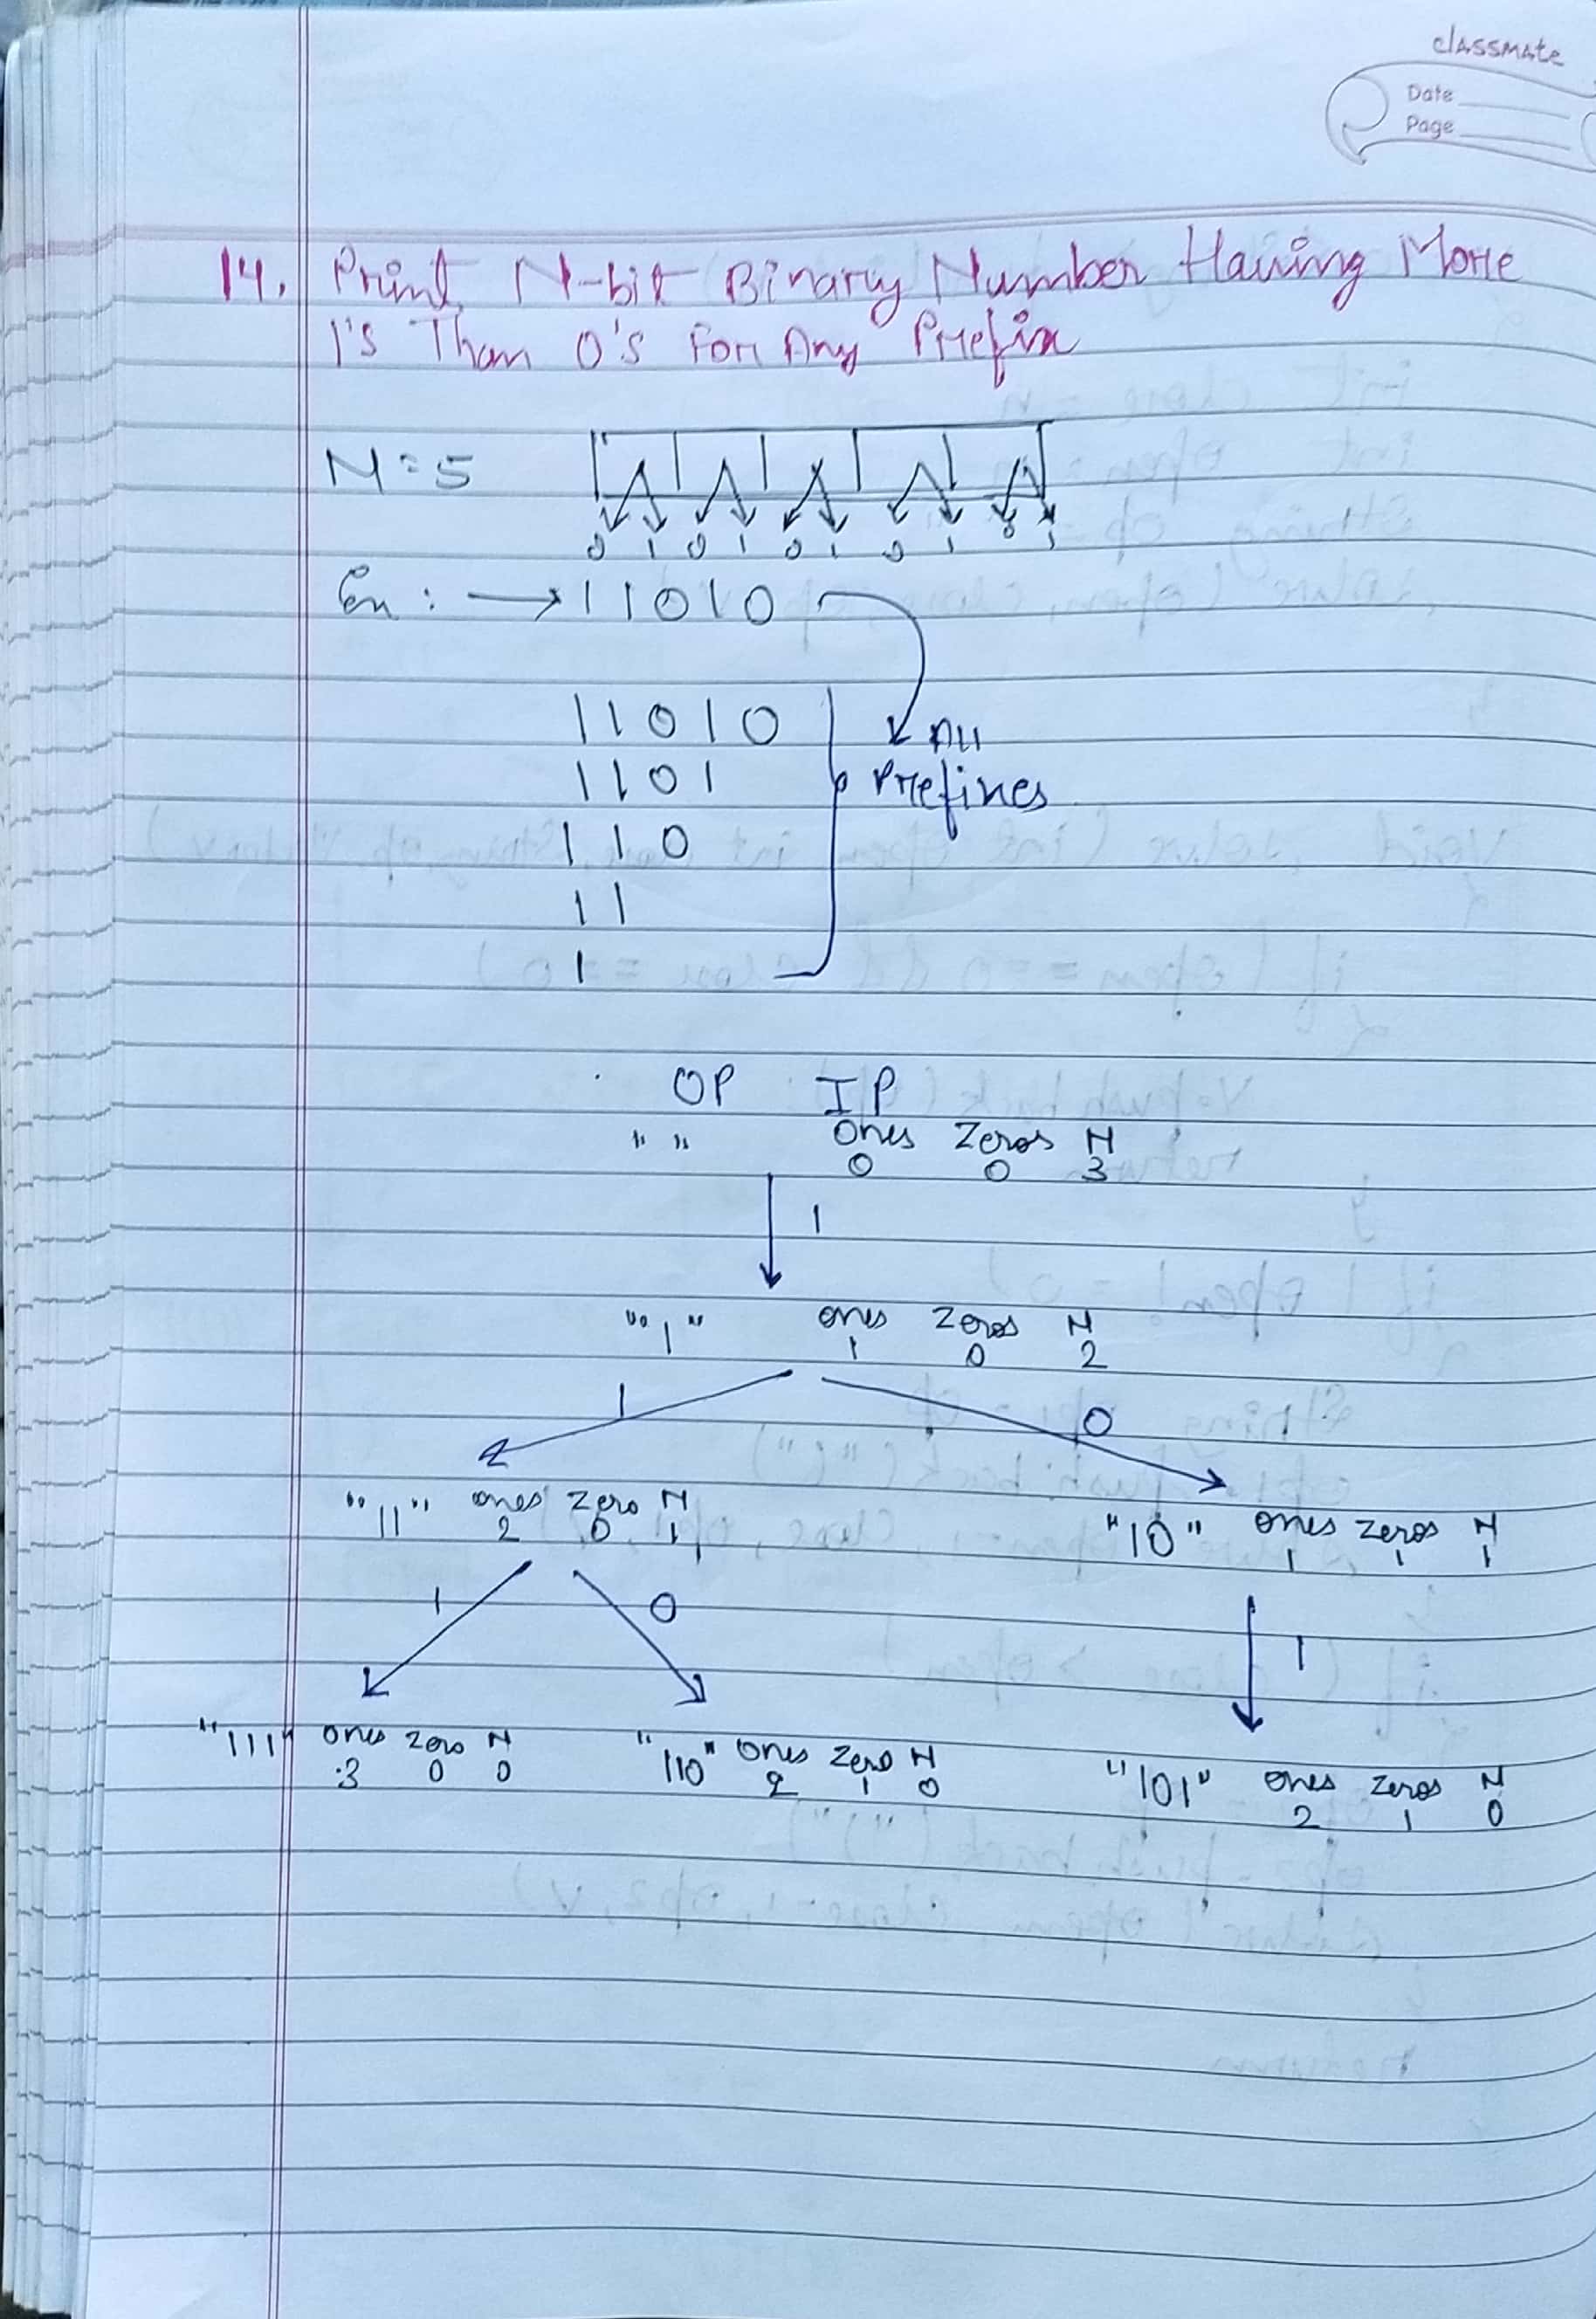 classmate
Date
Page
14. Print N-bit Binary Number Having More
1's Than 0's For Any Prefix
N = 5
0 1 0 1 0 1 0 1 0 1
Ex : → 11010
11010
1101
110
11
1
All
Prefixes
OP IP
" " Ones Zeros N
0 0 3
1
"1" ones Zeros N
1 0 2
1 0
"11" ones Zero N
2 0 1
"10" ones zeros N
1 1 1
1 0 1
"111" ones zero N
3 0 0
"110" ones zero N
2 1 0
"101" ones zeros N
2 1 0